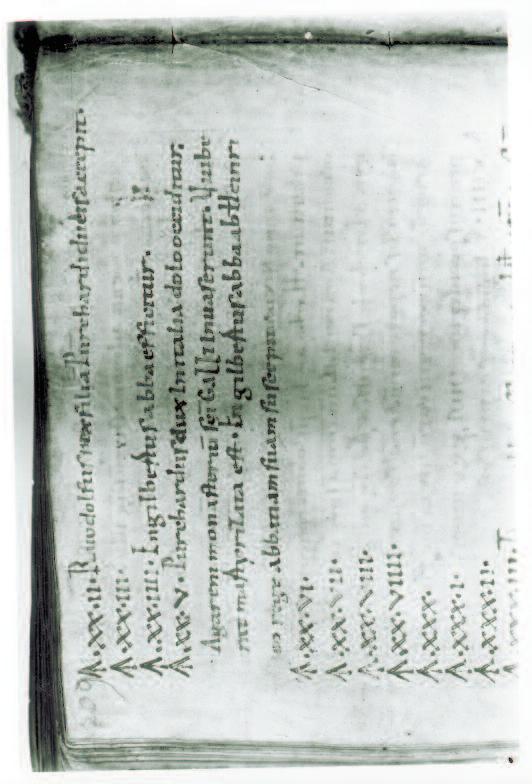 A·XX·II· Ruodolfus rex filiā Purchardi ducis accepit·
A·XX·III·
A·XX·IIII· Engilbertus abba efficitur·
A·XX·V· Purchardus dux In italia dolo occiditur·
Agareni monasteriū sc̄i Galli Inuaserunt· Uuibe
rat martyrizata est· Engilbertus abba ab Heinri
co rege abbatiam suam suscepit
A·XX·VI·
A·XX·VII·
A·XX·VIII·
A·XX·VIIII·
A·XXX·
A·XXX·I·
A·XXX·II·
A·XXX·III·
209